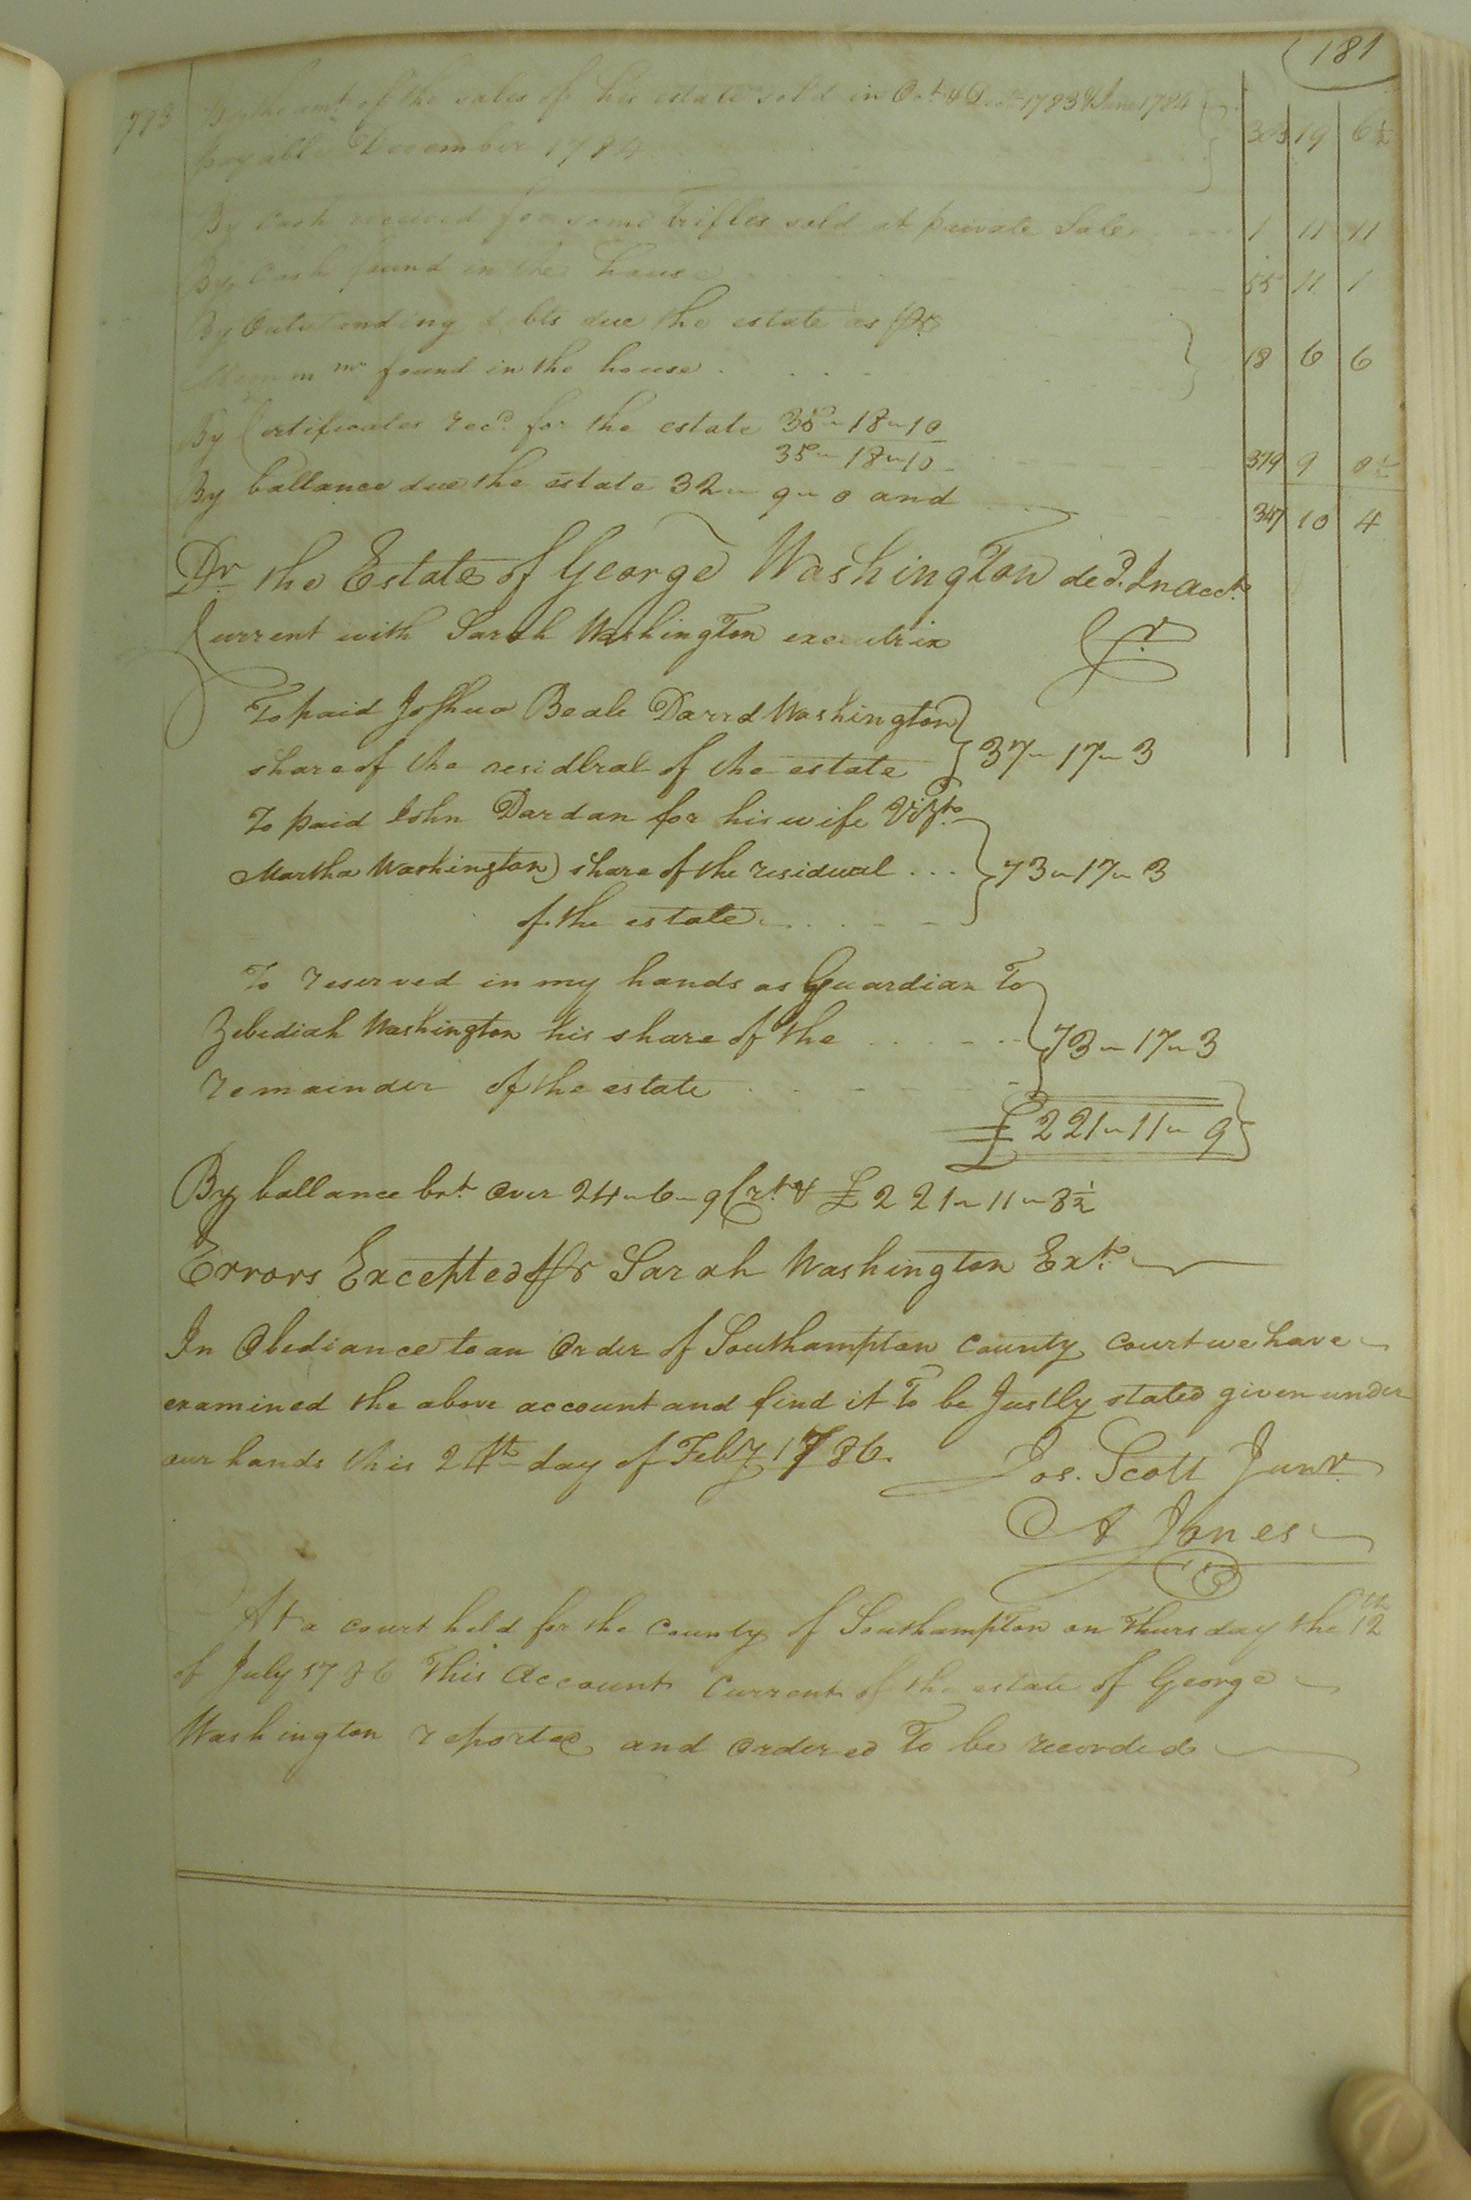 181
783 By the amt. of the sales of his estate sold in Oct. & 1783 & June 1784
payable December 1784
303 19 6½
By Cash received for some trifles sold at private Sale 1 11 11
By Cash found in the house 55 11 1
By Outstanding debts due the estate as pr
found in the house . 18 6 6
By Certificates recd. for the estate 35 " 18 " 10
35 " 18 " 10 379 9 0½
By ballance due the estate 32 " 9 " 0 and 347 10 4
Dr. the Estate of George Washington decd. In Acct.
Current with Sarah Washington executrix Cr.
To paid Joshua Beale Washington
share of the of the estate 37 " 17 " 3
To paid John Dardan for his wife Vizt.
Martha Washington) share of the residual ... 73 " 17 " 3
of the estate
To reserved in my hands as Guardian To
Zebediah Washington his share of the 73 " 17 " 3
remainder of the estate
£ 221 " 11 " 9
By ballance brt. over 24 " 6 " 9 Crt. & £ 221 " 11 " 3½
Errors Excepted Pr Sarah Washington Exx.
In Obediance to an Order of Southampton County Court we have
examined the above account and find it To be Justly stated given under
our hands this 24th day of Feby 1786.
Jos. Scott Junr.
A Jones
At a court held for the County of Southampton on Thursday the 12th
of July 1786 This Account Current of the estate of George
Washington reported and ordered To be recorded